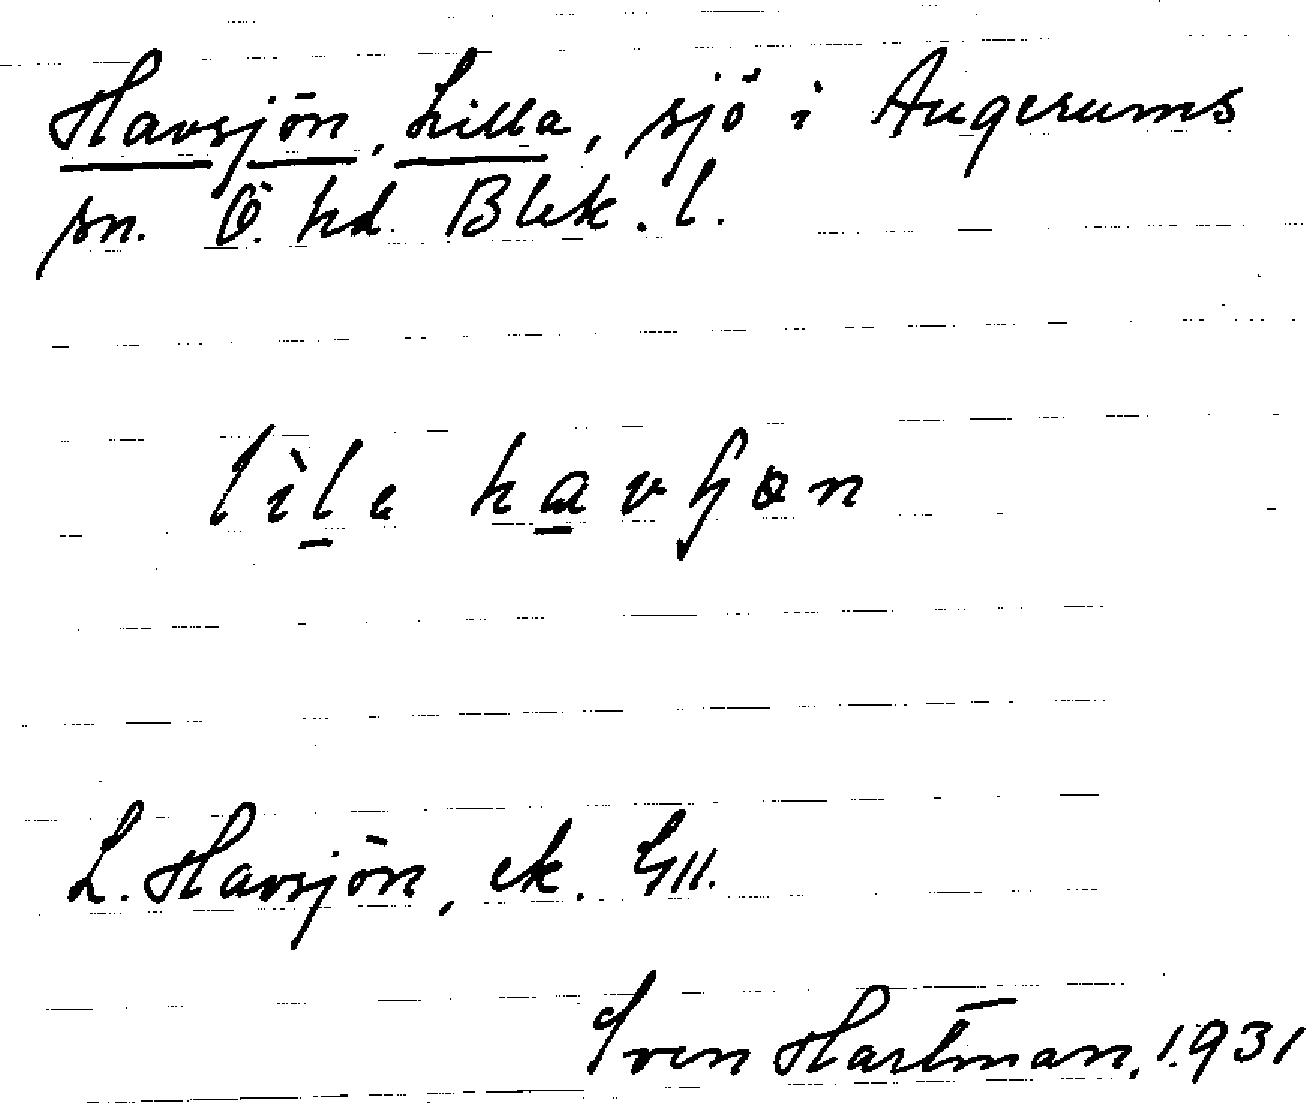 Havsjön, Lilla, sjö i Augerums
sn. Ö. hd. Blek. l.
lìla havʃøn
L. Havsjön, ek.
Sven Hartman, 1931